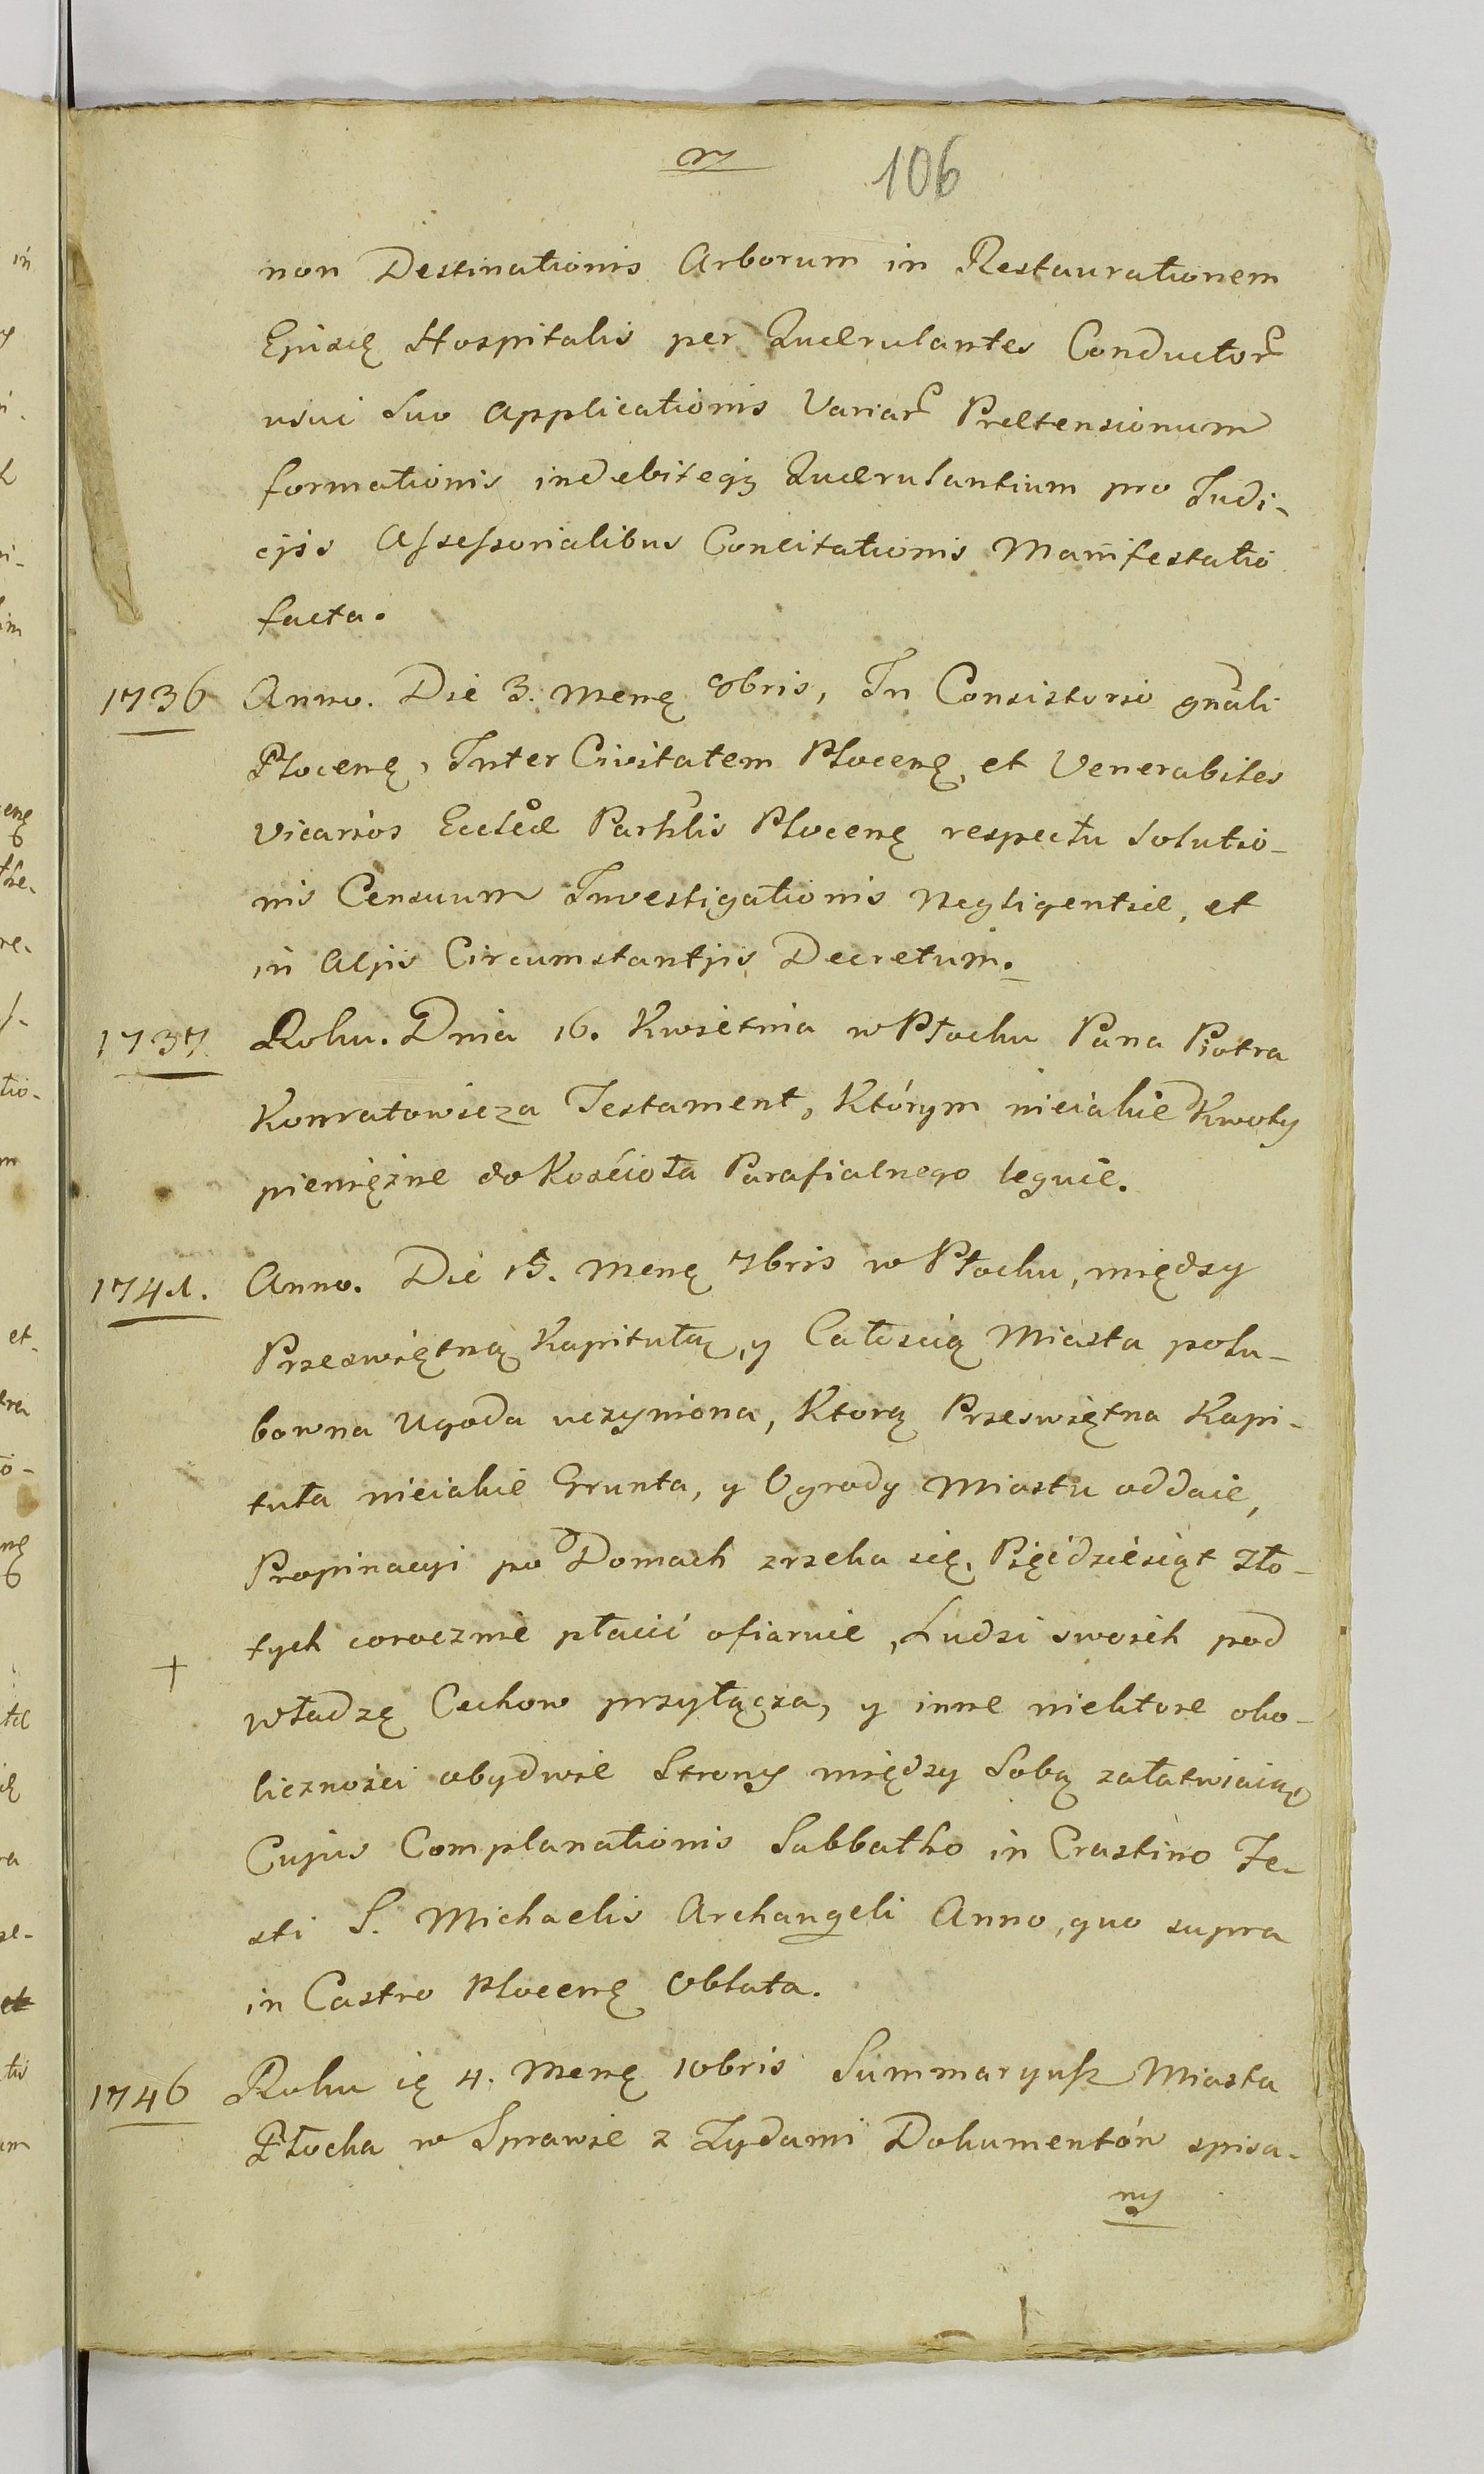 7 106
non Destinationis Arborum in Restaurationem
Ejusdę Hospitalis per Quærulantes Conductor
usui Suo Applicationis Variar Prætensionum
formationis indebiteqз Quærulantium pro Judi-
cijs Assessorialibus Concitationis Manifestatio
facta.
1736 Anno. Die 3. Menę 9bris, In Consistorio gnāli
Płocenę, Inter Civitatem Plocenę, et Venerabiles
Vicarios Eccleæ Parhlis Plocenę respectu Solutio-
nis Censuum Investigationis Negligentiæ, et
in Alijs Circumstantijs Decretum.
1737 Roku. Dnia 16. Kwietnia w Płocku Pana Piotra
Konratowicza Testament, Którym nieiakie Kwoty
pieniężne do Kościoła Parafialnego leguie.
1741. Anno. Die 15. Menę 7bris w Płocku, między
Przeświętną Kapitułą, y Całością Miasta polu-
bowna Ugoda uczyniona, Ktorą Przeświętna Kapi-
tuła nieiakie Grunta, y Ogrody Miastu oddaie,
Propinacyi po Domach zrzeka się, Pięćdziesiąt Zło-
tych corocznie płacić ofiaruie, Ludzi swoich pod
+ władzę Cechow przyłącza, y inne niektore oko-
liczności obydwie Strony między Sobą załatwiaią
Cujus Complanationis Sabbatho in Crastino Fe-
sti S. Michaelis Archangeli Anno, quo supra
in Castro Plocenę Oblata.
1746 Roku ię 4. Menę 10bris Summaryusz Miasta
Płocka w Sprawie z Zydami Dokumentów spisa-
ny